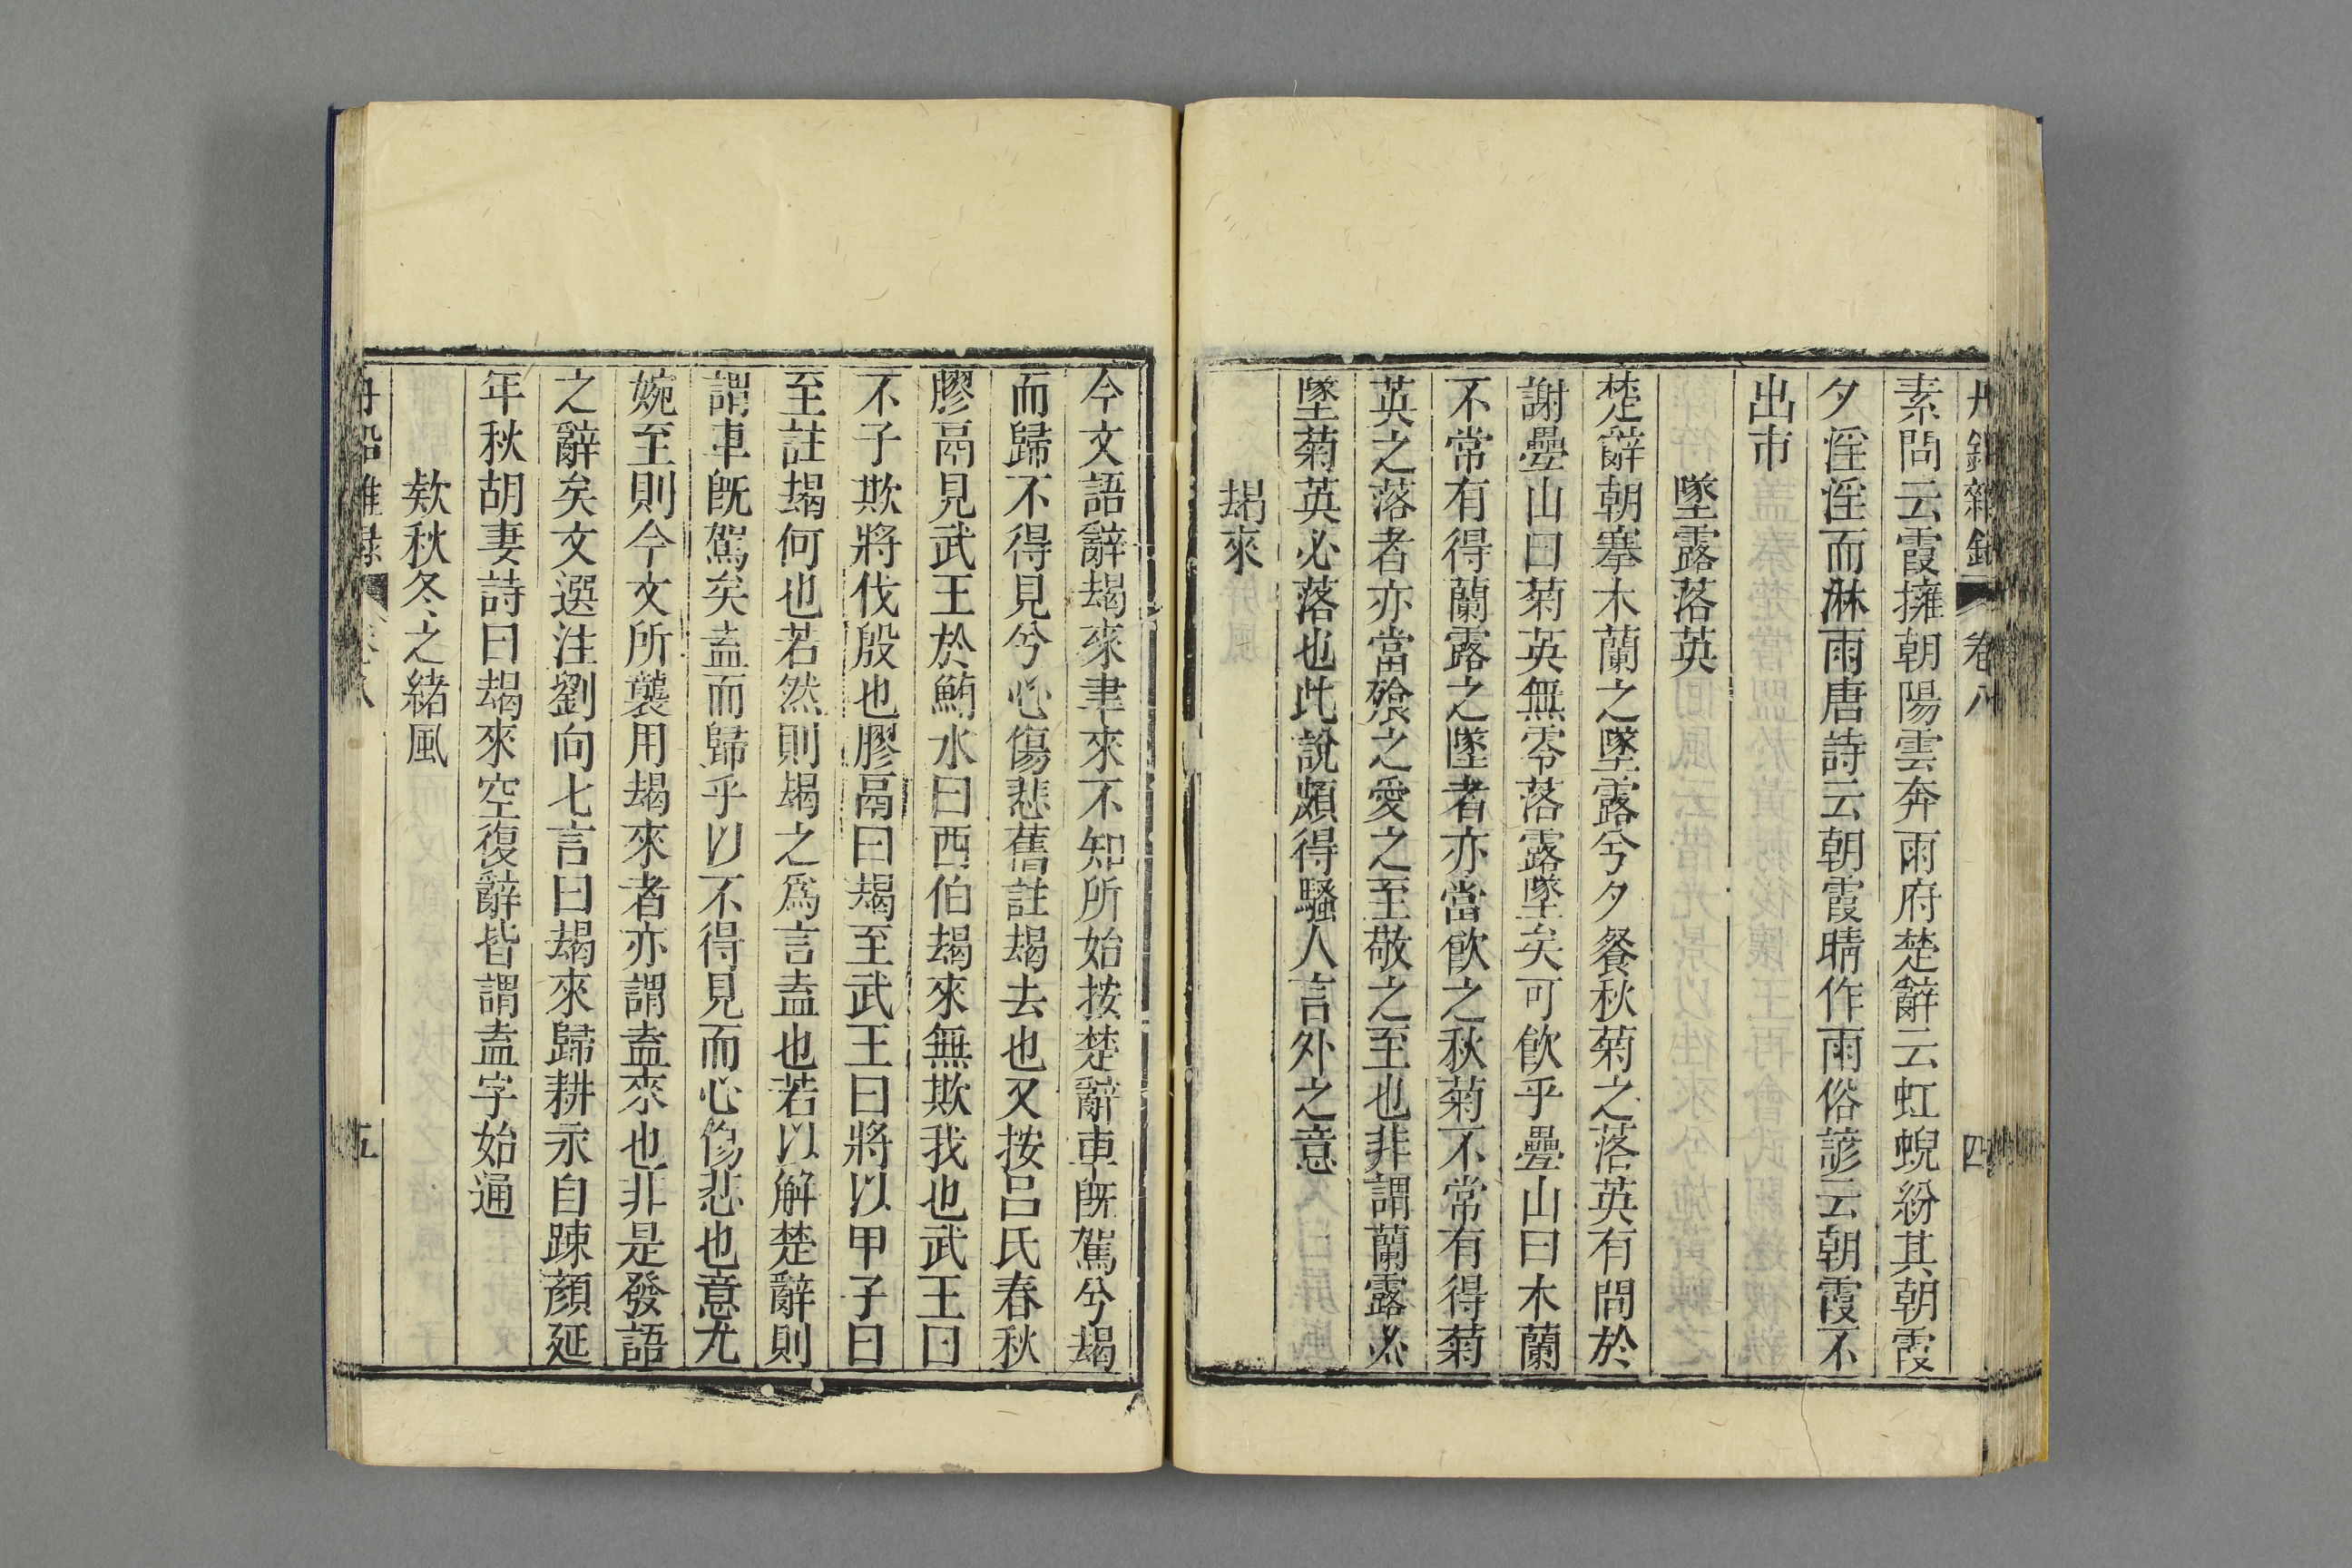 素問云霞擁朝陽雲奔雨府楚辭云虹蜺紛其朝霞
夕淫淫而淋雨唐詩云朝霞晴作雨俗諺云朝霞不
出市
墜露落英
楚辭朝搴木蘭之墜露兮夕餐秋菊之落英有問於
謝疊山曰菊英無零落露墜矣可飲乎疊山曰木蘭
不常有得蘭露之墜者亦當飲之秋菊不常有得菊
英之落者亦當飱之愛之至敬之至也非謂蘭露必
墜菊英必落也此說頗得騷人言外之意
朅來
今文語辭朅來聿來不知所始按楚辭車旣駕兮朅
而歸不得見兮心傷悲舊註朅去也又按呂氏春秋
膠鬲見武王於鮪水曰西伯朅來無欺我也武王曰
不子欺將伐殷也膠鬲曰朅至武王曰將以甲子日
至註朅何也若然則朅之爲言盍也若以解楚辭則
謂車旣駕矣盍而歸乎以不得見而心傷悲也意尤
婉至則今文所襲用朅來者亦謂盍來也非是發語
之辭矣文選注劉向七言曰朅來歸耕永自踈顏延
年秋胡妻詩曰朅來空復辭皆謂盍字始通
欸秋冬之緒風